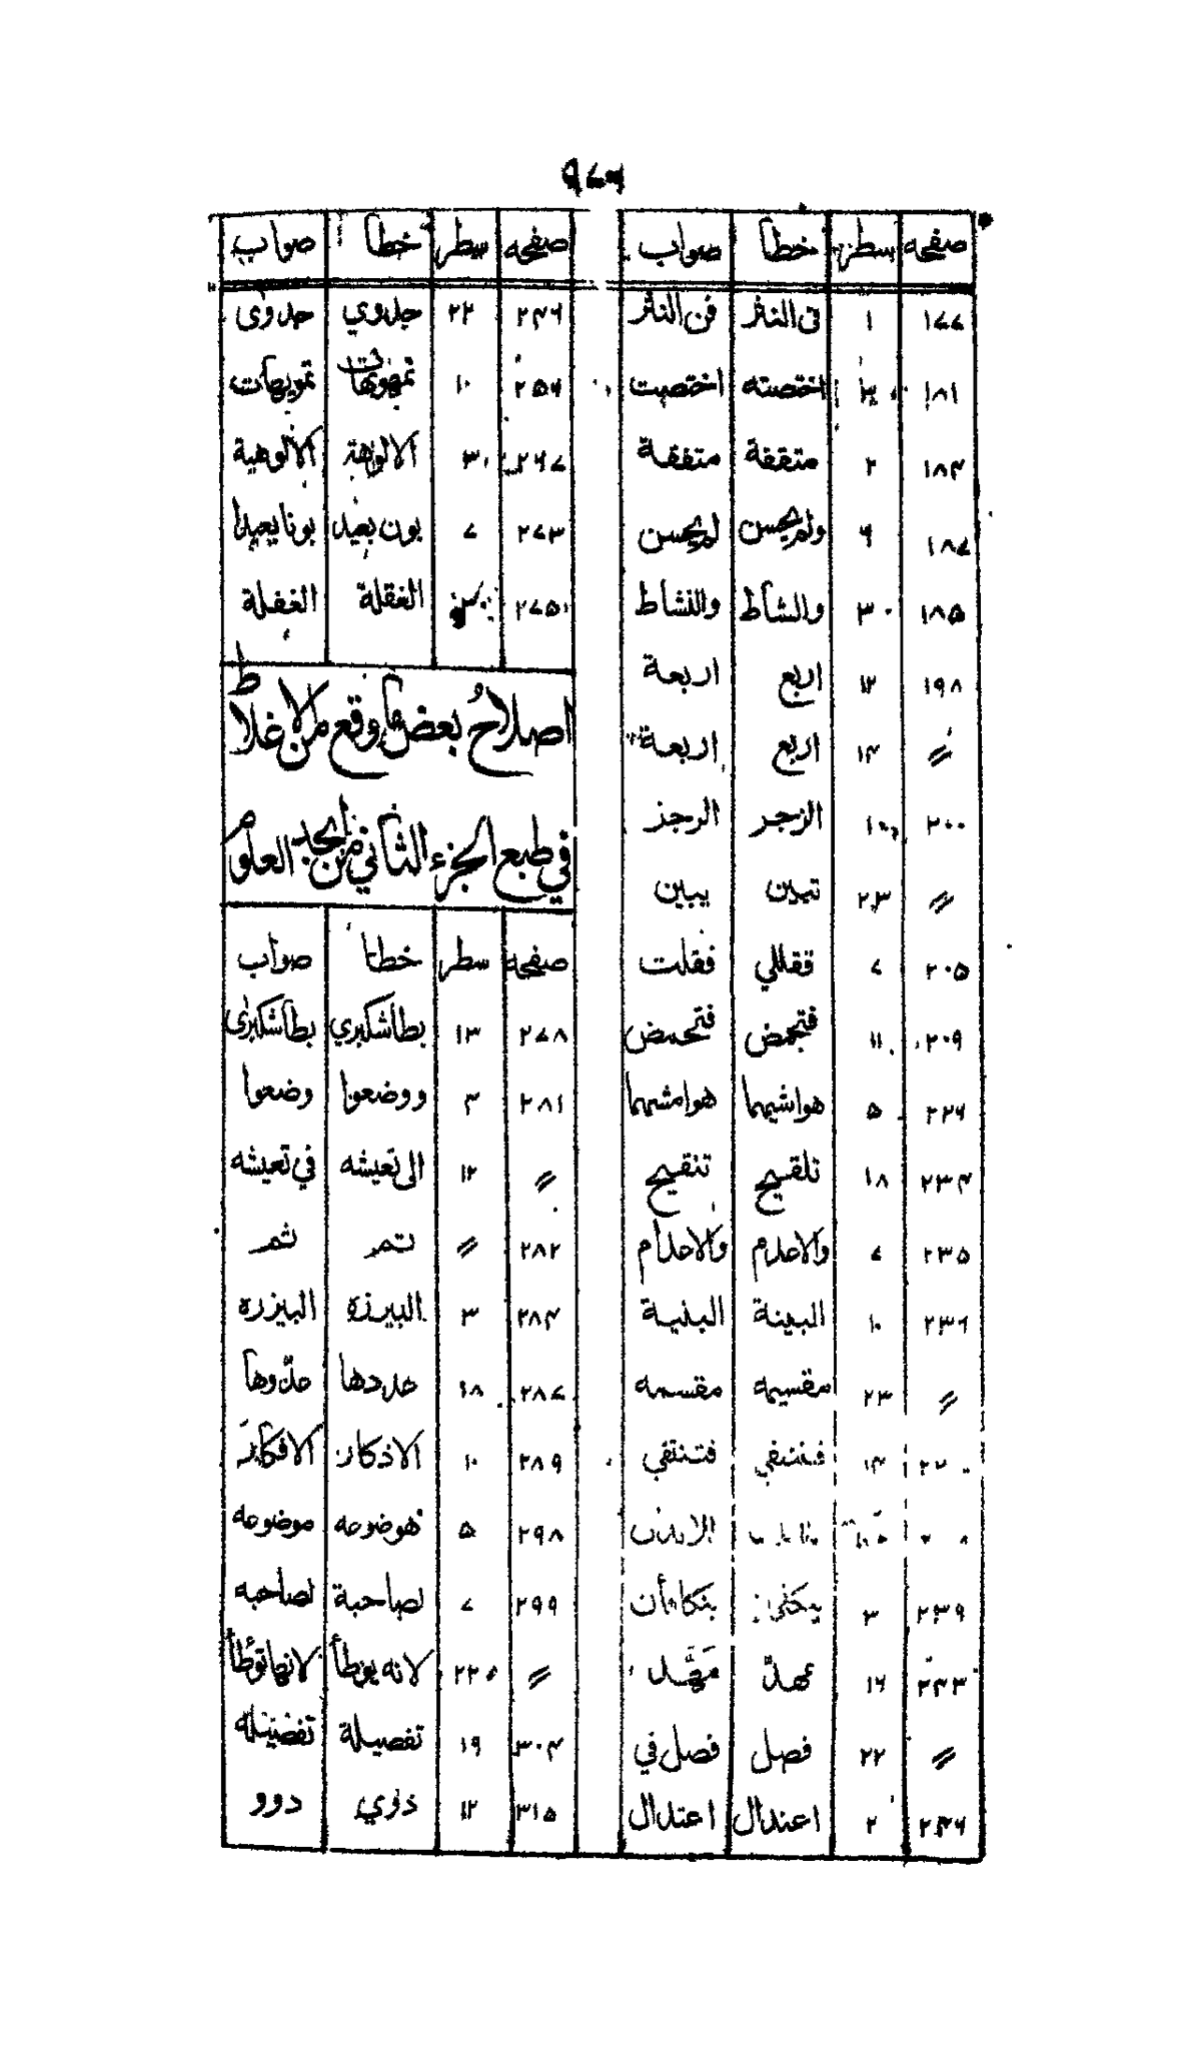 ٩٧٦
صفحه سطر خطأ صواب
١٧٧ ١ فی النثر فن النثر
١٨١ اختصته اختصت
١٨٣ ٢ متقفة متفقة
١٨٧ ٦ ولم یحسن لم یحسن
١٨٥ ٣٠ والشاط والنشاط
١٩٨ ١٢ اربع اربعة
〃 ١٤ اربع اربعة
٢٠٠ الزجر الرجز
〃 ٢٣ تبین یبین
٢٠٥ ٧ فقللي فقلت
٢٠٩ ١١ فتجمض فتحمض
٢٢٦ ٥ هواشیهما هوامشهما
٢٣٤ ١٨ تلقیح تنقیح
٢٣٥ ٧ والاعلام والاحلام
٢٣٦ ١٠ البینة البنیة
〃 ٢٣ مقسیمه مقسمه
١٤ فتنتفي
٢٣٩ ٣
٢٤٣ ١٦ عهدّ مَهَّد
〃 ٢٢ فصل فصل في
٢٤٦ ٢ اعتدال اعتدال
صفحه سطر خطأ صواب
٢٤٦ ٢٢ جدوي حدوی
٢٥٦ ١٠ تمهویات تمویهات
٢٦٧ ٣٠ الالوهة الألوهیة
٢٧٣ ٧ بون بعید بونا بعیدا
٢٧٥ الغقلة الغفلة
اصلاح بعض ما وقع من الاغلاط
في طبع الجزء الثاني من ابجد العلوم
صفحه سطر خطأ صواب
٢٧٨ ١٣ بطاشکبري بطاشکبری
٢٨١ ٣ ووضعوا وضعوا
〃 ١٢ الی تعیشه في تعیشه
٢٨٢ 〃 تم ثم
٢٨٤ ٣ البیرزه البیزره
٢٨٧ ١٨ هددها حدّوها
٢٨٩ ١٠ الاذکار الافکار
٢٩٨ ٥ هوضوعه موضوعه
٢٩٩ ٧ لصاحبة لصاحبه
〃 ٢٢ لانه یوطأ لانها توطأ
٣٠٤ ١٩ تفصیلة تفضیله
٣١٥ ١٢ ذوي دوو